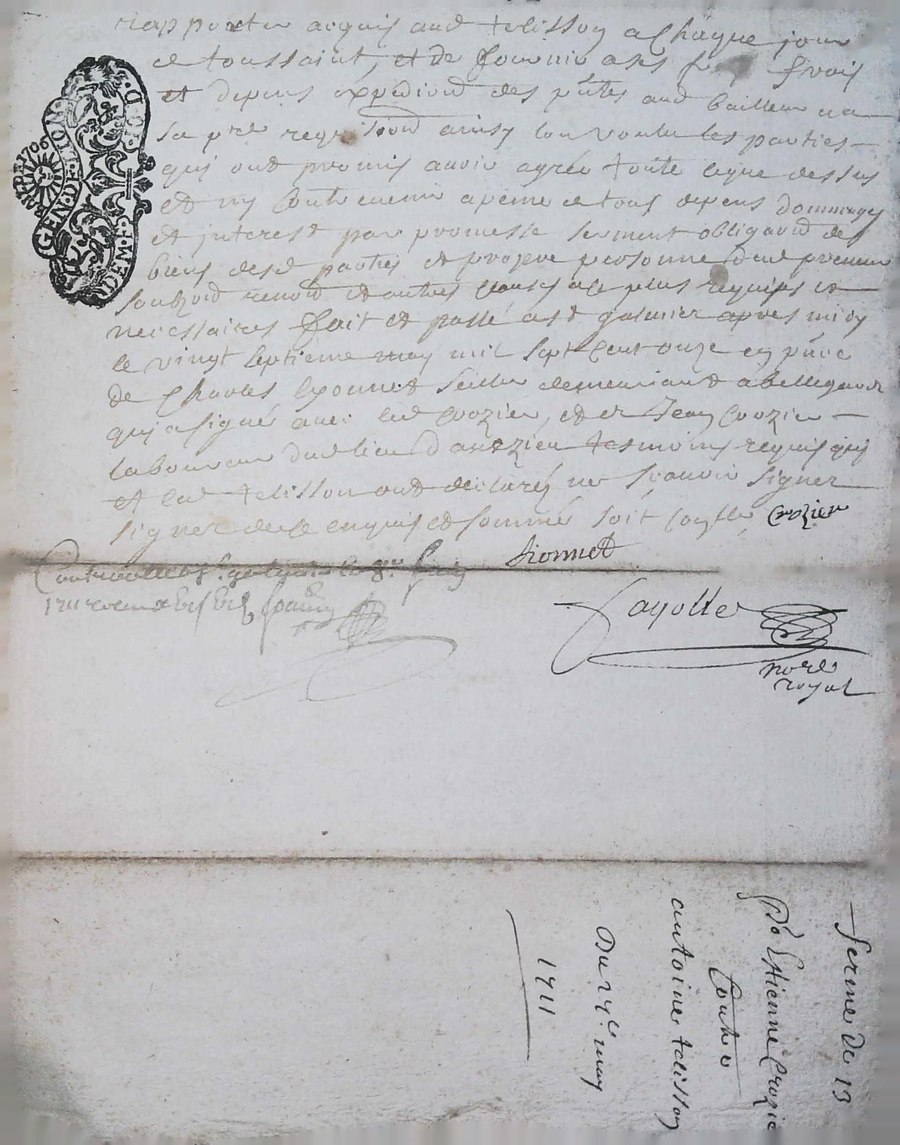 rapporter acquis aud telisson a chaque jour
de toussaint, et de fournir a ses fraix
et depens expedition des pntes aud bailleur a
sa pre requision ainsy lon voulu les parties
qui ont promis avoir agreé toute ce que dessus
et ny contrevenir a peine de tous depens dommages
et interest par promesse serment obligaon de
biens desd parties et personne dud preneur
renon et autres clauses a ce plus requises et
necessaires fait et passé a st galmier apres midy
le vingt septieme may mil sept cent onze en pnce
de Charles Lyonnet sellier demeurant a bellegarde
qui a signé avec led crozier, et de Jean Crozier
laboureur dud lieu d'auzieu tesmoins requis qui
et led telisson ont declaré ne sçavoir signer
signer de ce enquis et sommé soit fayolle Crozier
Lionnet
Controllé a st galmier le juin
1711
fayolle
nore
royal
GEN.DE.LION
DEM.F
ferme de 13
Po Estienne Crozie
Contre
antoine telisson
Du 27e may
1711